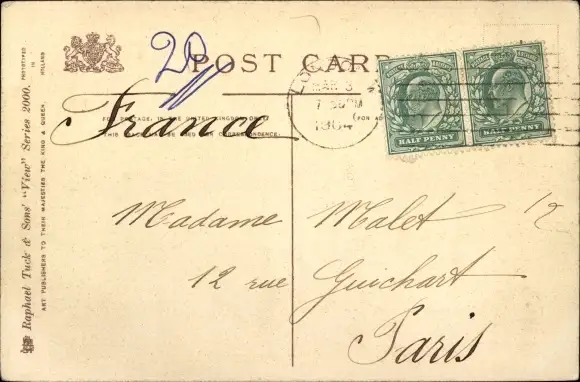 Raphael Tuck & Sons' "View" Series 2000.
ART PUBLISHERS TO THEIR MAJESTIES THE KING & QUEEN.
PHOTOTYPED IN HOLLAND
20
POST CARD
FOR POSTAGE, IN THE UNITED KINGDOM ONLY
THIS SPACE MAY BE USED FOR CORRESPONDENCE.
(FOR AD
France
LONDON
MAR 3
1904
HALF PENNY
HALF PENNY
Madame Malet
1/2
12 rue Guichart
Paris